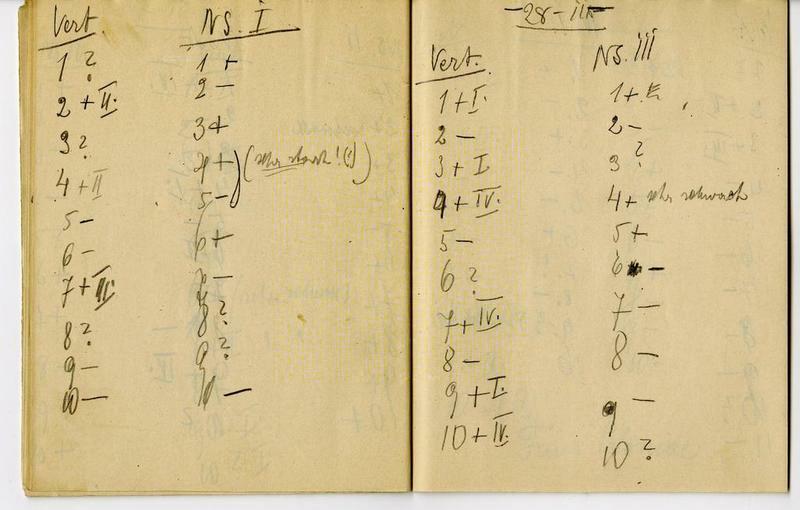 Vert.
1 ?
2 + II.
3 ?
4 + II
5 —
6 —
7 + III.
8 ?
9 —
10 —
NS. I
1 +
2 —
3 +
4 + (sehr stark!(!))
5 —
6 +
7 —
8 ?
9 ?
10 —
28-
Vert.
1 + I.
2 —
3 + I
4 + IV.
5 —
6 ?
7 + IV.
8 —
9 + I.
10 + IV.
NS. III
1 +
2 —
3 ?
4 + sehr schwach
5 +
6 —
7 —
8 —
9 —
10 ?